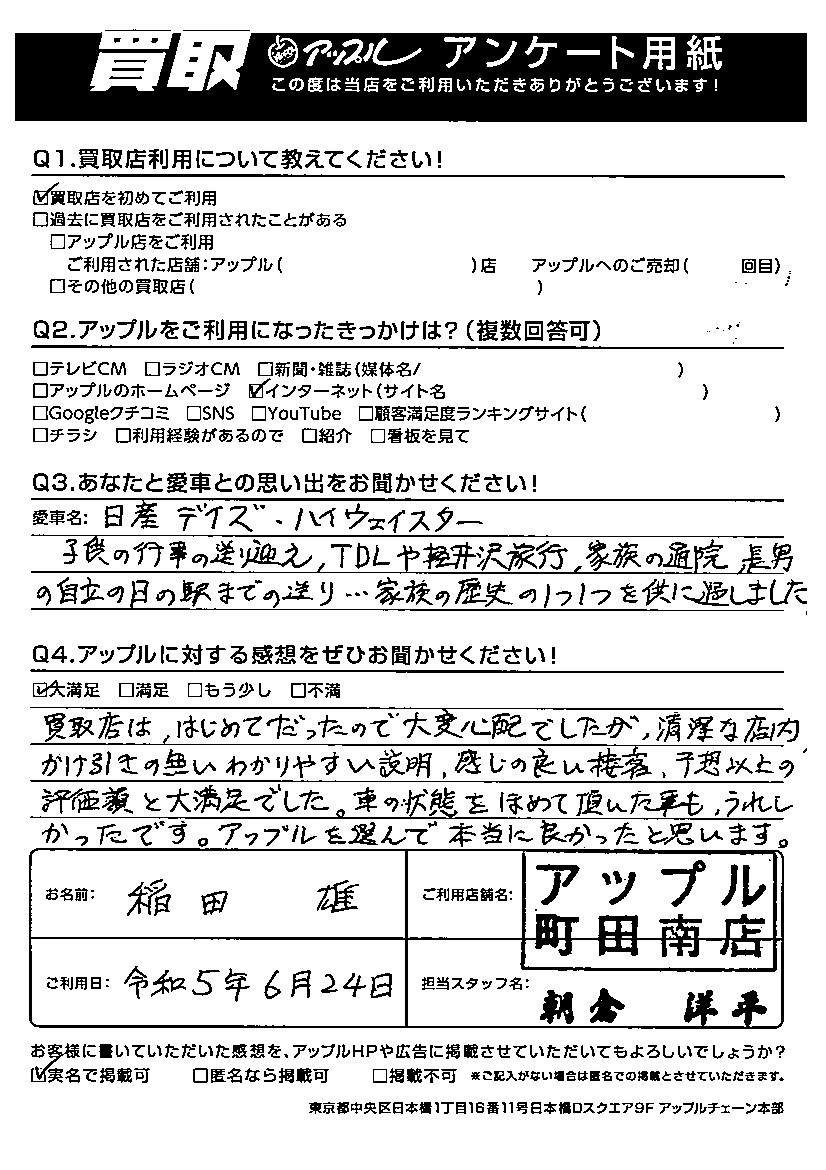 買取 アップル アンケート用紙
この度は当店をご利用いただきありがとうございます！
Q1.買取店利用について教えてください！
☑買取店を初めてご利用
□過去に買取店をご利用されたことがある
□アップル店をご利用
ご利用された店舗：アップル（　　）店　アップルへのご売却（　　回目）
□その他の買取店（　　）
Q2.アップルをご利用になったきっかけは？（複数回答可）
□テレビCM □ラジオCM □新聞・雑誌（媒体名/　　）
□アップルのホームページ ☑インターネット（サイト名　　）
□Googleクチコミ □SNS □YouTube □顧客満足度ランキングサイト（　　）
□チラシ □利用経験があるので □紹介 □看板を見て
Q3.あなたと愛車との思い出をお聞かせください！
愛車名：日産 デイズ・ハイウェイスター
子供の行事の送り迎え，TDLや軽井沢旅行，家族の通院，長男
の自立の日の駅までの送り…家族の歴史の1つ1つを供に過しました
Q4.アップルに対する感想をぜひお聞かせください！
☑大満足 □満足 □もう少し □不満
買取店は，はじめてだったので大変心配でしたが，清潔な店内
かけ引きの無いわかりやすい説明，感じの良い接客，予想以上の
評価額と大満足でした。車の状態をほめて頂いた事も，うれし
かったです。アップルを選んで本当に良かったと思います。
お名前：稲田 雄
ご利用店舗名：アップル
町田南店
ご利用日：令和5年6月24日
担当スタッフ名：朝倉 洋平
お客様に書いていただいた感想を、アップルHPや広告に掲載させていただいてもよろしいでしょうか？
☑実名で掲載可 □匿名なら掲載可 □掲載不可 ※ご記入がない場合は匿名での掲載とさせていただきます。
東京都中央区日本橋1丁目16番11号日本橋Dスクエア9F アップルチェーン本部